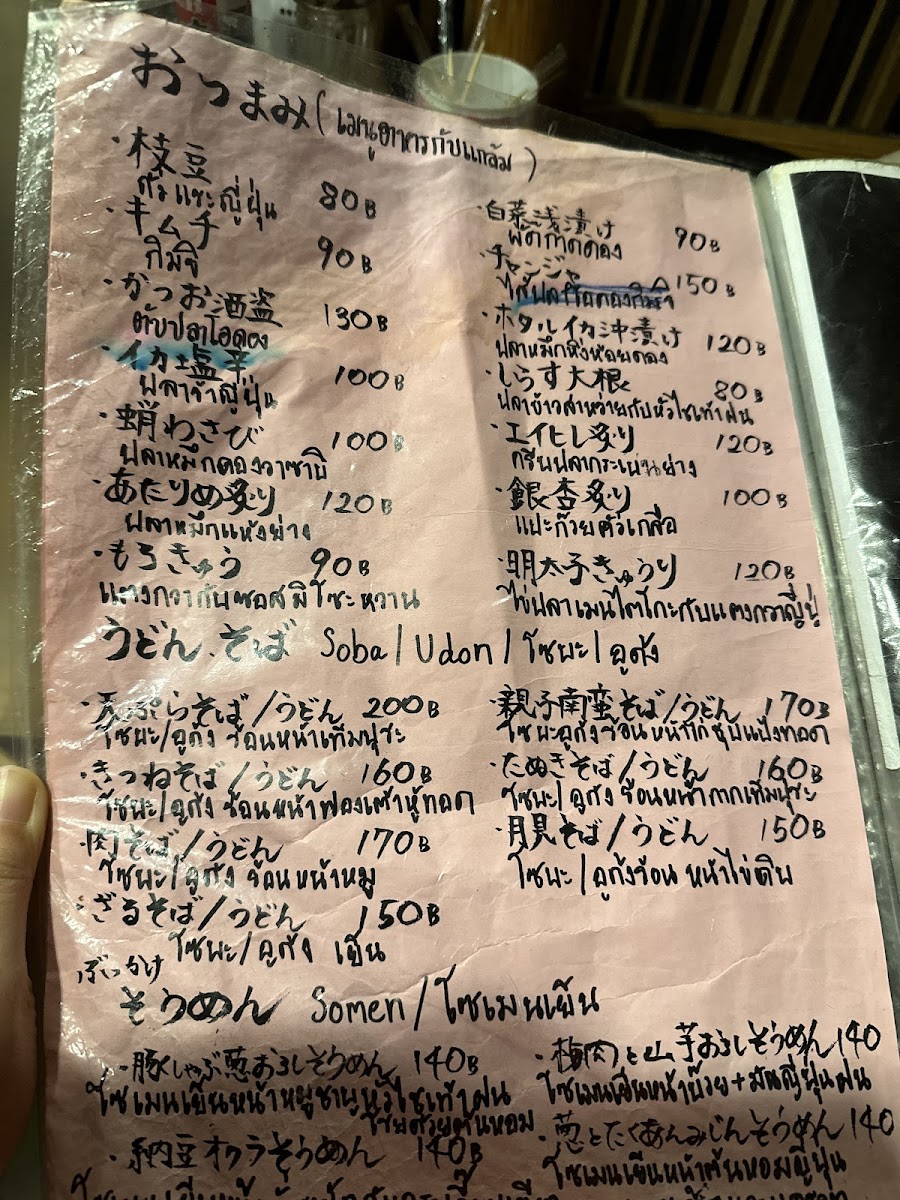 おつまみ (เมนูอาหารกับแกล้ม)
・枝豆 80B
ถั่วแระญี่ปุ่น
・キムチ 90B
กิมจิ
・かつお酒盗 130B
ตับปลาโอดอง
・イカ塩辛 100B
ปลาร้าญี่ปุ่น
・蛸わさび 100B
ปลาหมึกดองวาซาบิ
・あたりめ炙り 120B
ปลาหมึกแห้งย่าง
・もろきゅう 90B
แตงกวากับซอสมิโซะหวาน
・白菜浅漬け 90B
ผักกาดดอง
・チャンジャ 150B
・ホタルイカ沖漬け 120B
ปลาหมึกหิ่งห้อยดอง
・しらす大根 80B
ปลาข้าวสาหว่ายกับหัวไชเท้าฝน
・エイヒレ炙り 120B
ครีบปลากระเบนย่าง
・銀杏炙り 100B
แปะก๊วยคั่วเกลือ
・明太子きゅうり 120B
ไข่ปลาเมนไตโกะกับแตงกวาญี่ปุ่น
うどん.そば Soba/Udon/โซบะ/อูด้ง
・天ぷらそば/うどん 200B
โซบะ/อูด้ง ร้อนหน้าเท็มปุระ
・きつねそば/うどん 160B
โซบะ/อูด้ง ร้อนหน้าฟองเต้าหู้ทอด
・肉そば/うどん 170B
โซบะ/อูด้ง ร้อนหน้าหมู
・ざるそば/うどん 150B
โซบะ/อูด้ง เย็น
・親子南蛮そば/うどん 170B
โซบะอูด้ง ร้อน หน้าไก่ชุบแป้งทอด
・たぬきそば/うどん 160B
โซบะ/อูด้ง ร้อนหน้ากากเท็มปุระ
・月見そば/うどん 150B
โซบะ/อูด้งร้อน หน้าไข่ดิบ
ぶっかけ
そうめん Somen/โซเมนเย็น
・豚しゃぶ葱おろしそうめん 140B
โซเมนเย็นหน้าหมูชาบูหัวไชเท้าฝน
โรยด้วยต้นหอม
・納豆オクラそうめん 140B
・梅肉と山芋おろしそうめん 140
โซเมนเย็นหน้าบ๊วย+มันญี่ปุ่นฝน
・葱とたくあんみじんそうめん 140
โซเมนเย็นหน้าต้นหอมญี่ปุ่น